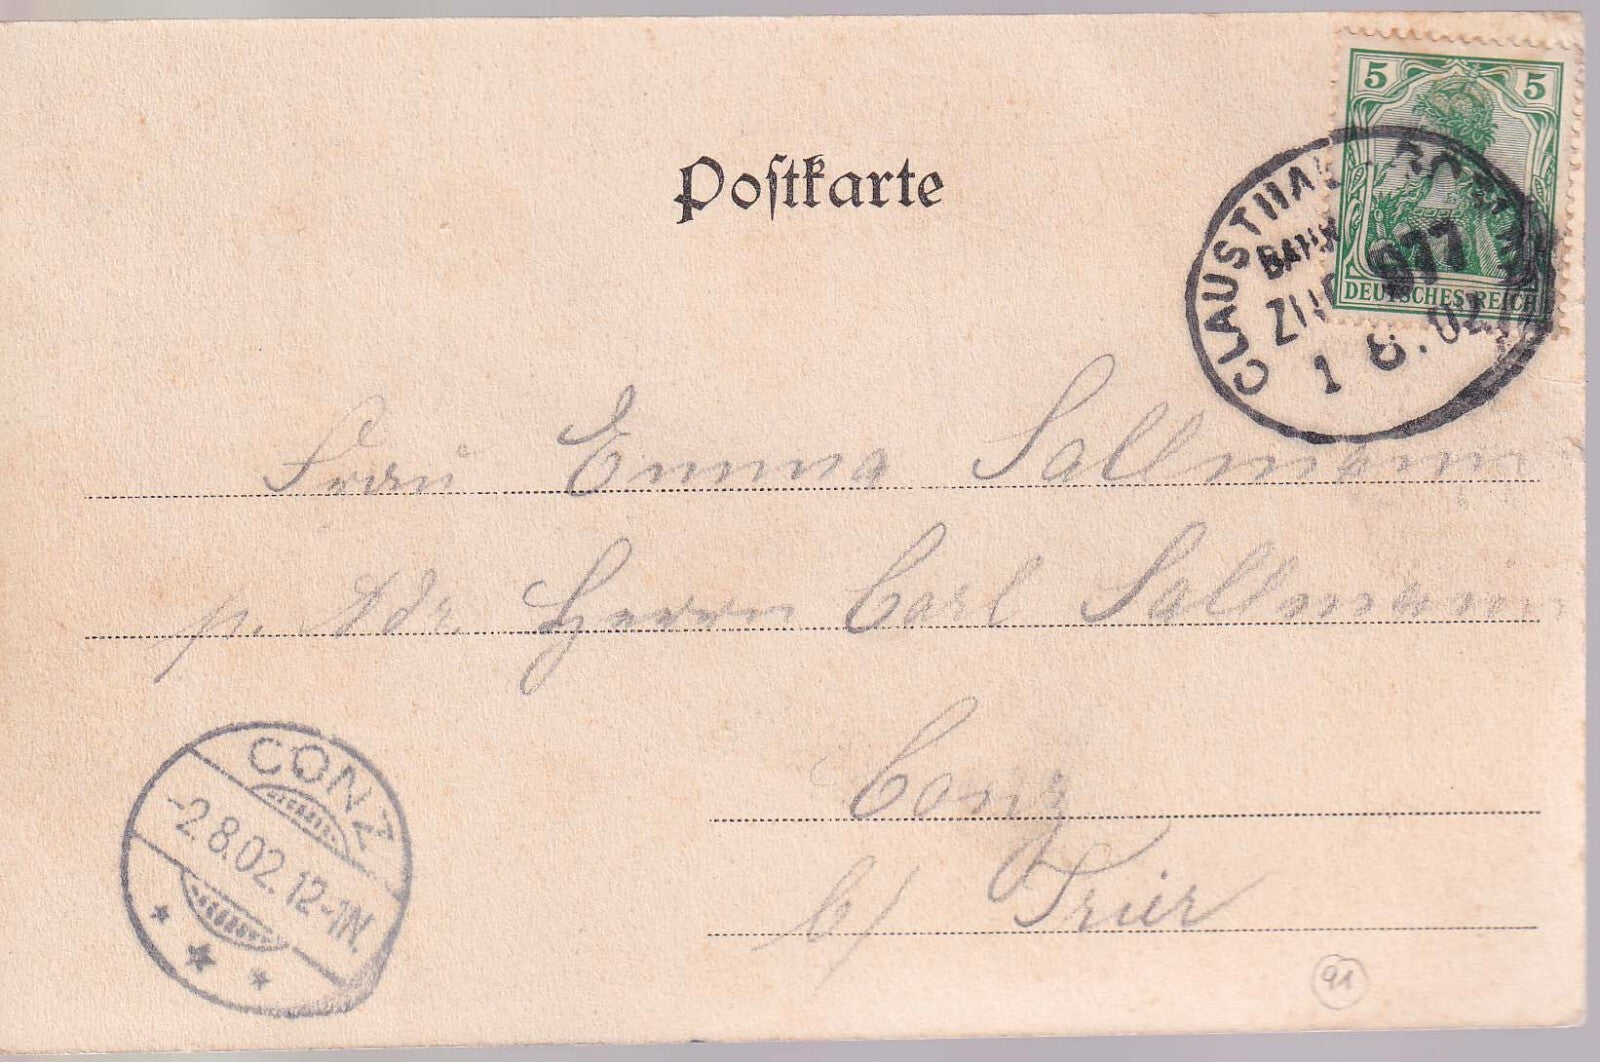 5 5
DEUTSCHES REICH
CLAUSTHAL -
BAHN
ZUG 977
1 8.02
Postkarte
Frau Emma Sallmann
p. Adr. Herrn Carl Sallmann
Conz
b/ Trier
CONZ
-2.8.02.12-1N.
91